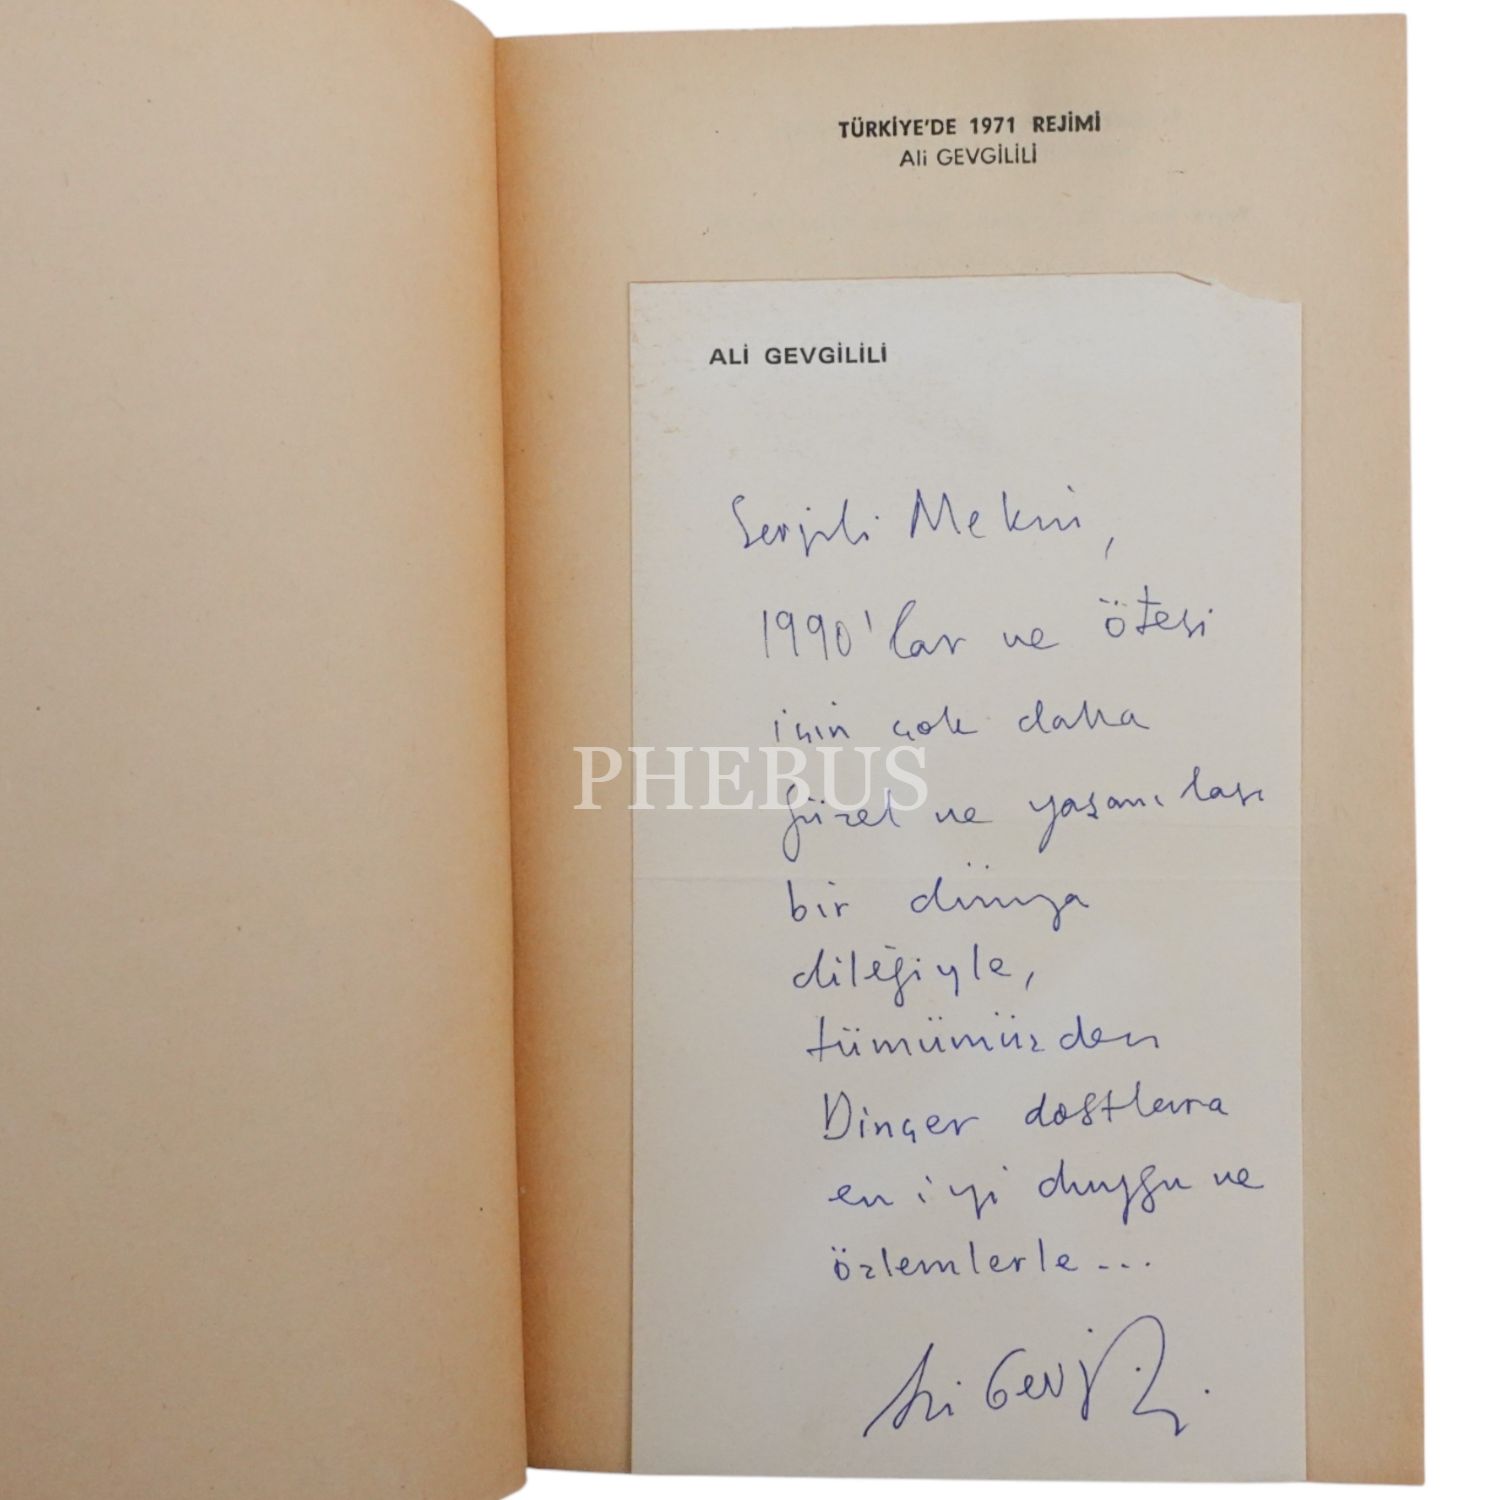 TÜRKİYE'DE 1971 REJİMİ
Ali GEVGİLİLİ
ALİ GEVGİLİLİ
Sevgili Mekin,
1990'lar ve ötesi
için çok daha
PHEBUS
güzel ve yaşanılası
bir dünya
dileğiyle,
tümümüzden
Dinçer dostlara
en iyi duygu ve
özlemlerle...
Ali Gevgili